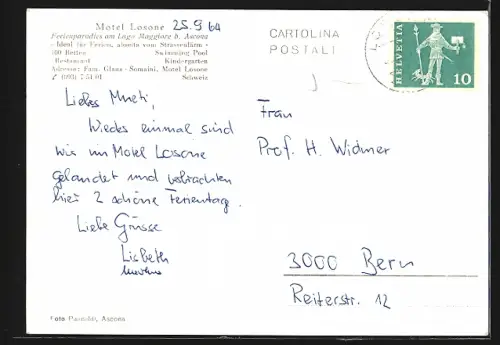 Motel Losone 25.9.64
Ferienparadies am Lago Maggiore b. Ascona
- Ideal für Ferien, abseits vom Strassenlärm -
100 Betten Swimming Pool
Restaurant Kindergarten
Adresse: Fam. Glaus-Somaini, Motel Losone
(093) 7 51 01 Schweiz
CARTOLINA
POSTALI
HELVETIA
10
Liebes Mueti,
Wieder einmal sind
wir im Motel Losone
gelandet und verbrachten
hier 2 schöne Ferientag.
Liebe Grüsse
Lisbeth
Frau
Prof. H. Widmer
3000 Bern
Reiterstr. 12
Foto Pancaldi, Ascona